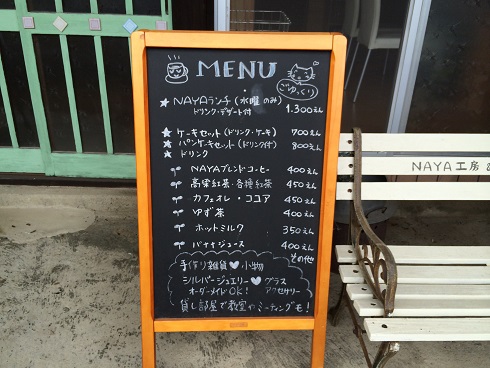 MENU
ごゆっくり
★ NAYAランチ (水曜のみ) 1.300えん
ドリンク・デザート付
★ ケーキセット(ドリンク・ケーキ) 700えん
★ パンケーキセット(ドリンク付) 800えん
★ ドリンク
NAYAブレンドコーヒー 400えん
高栄紅茶・各種紅茶 450えん
カフェオレ・ココア 450えん
ゆず茶 400えん
ホットミルク 350えん
バナナジュース 400えん
その他
手作り雑貨♥小物
シルバージュエリー♥グラス
オーダーメイドOK! アクセサリー
貸し部屋で教室やミーティングも!
NAYA工房